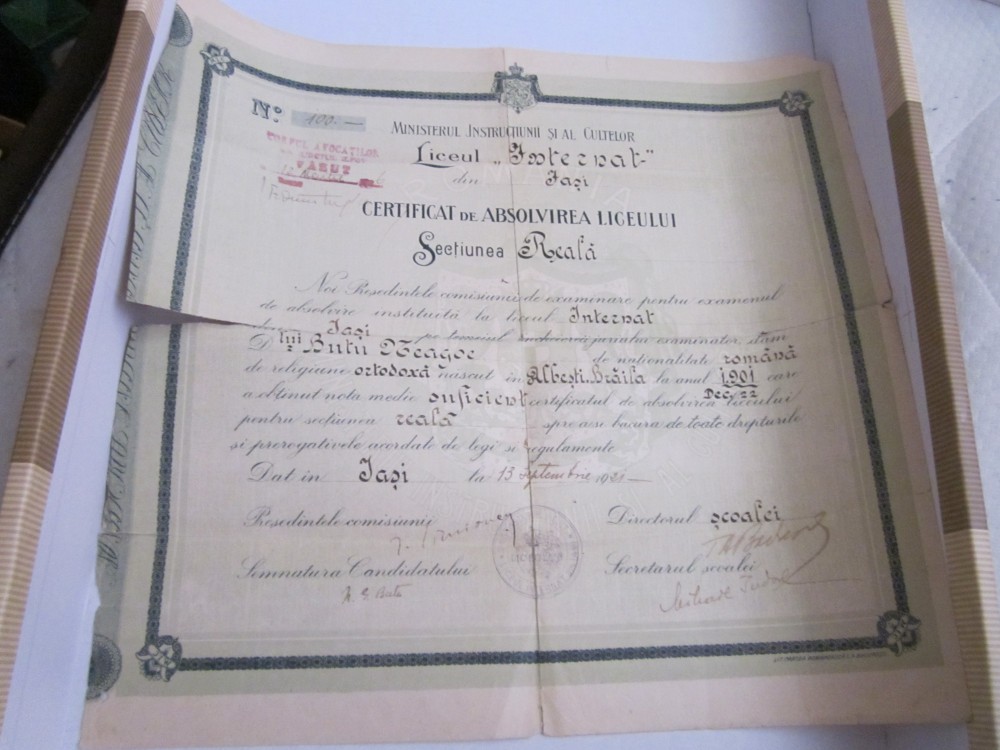 No. 100.—
MINISTERUL INSTRUCȚIUNII ȘI AL CULTELOR
CORPUL AVOCAȚILOR
Liceul „Internat"
VĂZUT
din Iași
CERTIFICAT DE ABSOLVIREA LICEULUI
Secțiunea Reală
Noi Președintele comisiunii de examinare pentru examenul
de absolvire instituită la liceul Internat
din Iași pe temeiul încheierii juriului examinator, dăm
D lui Butu Neagoe de naționalitate română
de religiune ortodoxă născut în Albești.Brăila la anul 1901 care
Dec. 22
a obținut nota medie suficient certificatul de absolvirea liceului
pentru secțiunea reală spre a se bucura de toate drepturile
și prerogativele acordate de legi și regulamente
Dat în Iași la 13 Septembrie 1921
Președintele comisiunii Directorul școalei
Semnatura Candidatului Secretarul școalei
N. G. Butu